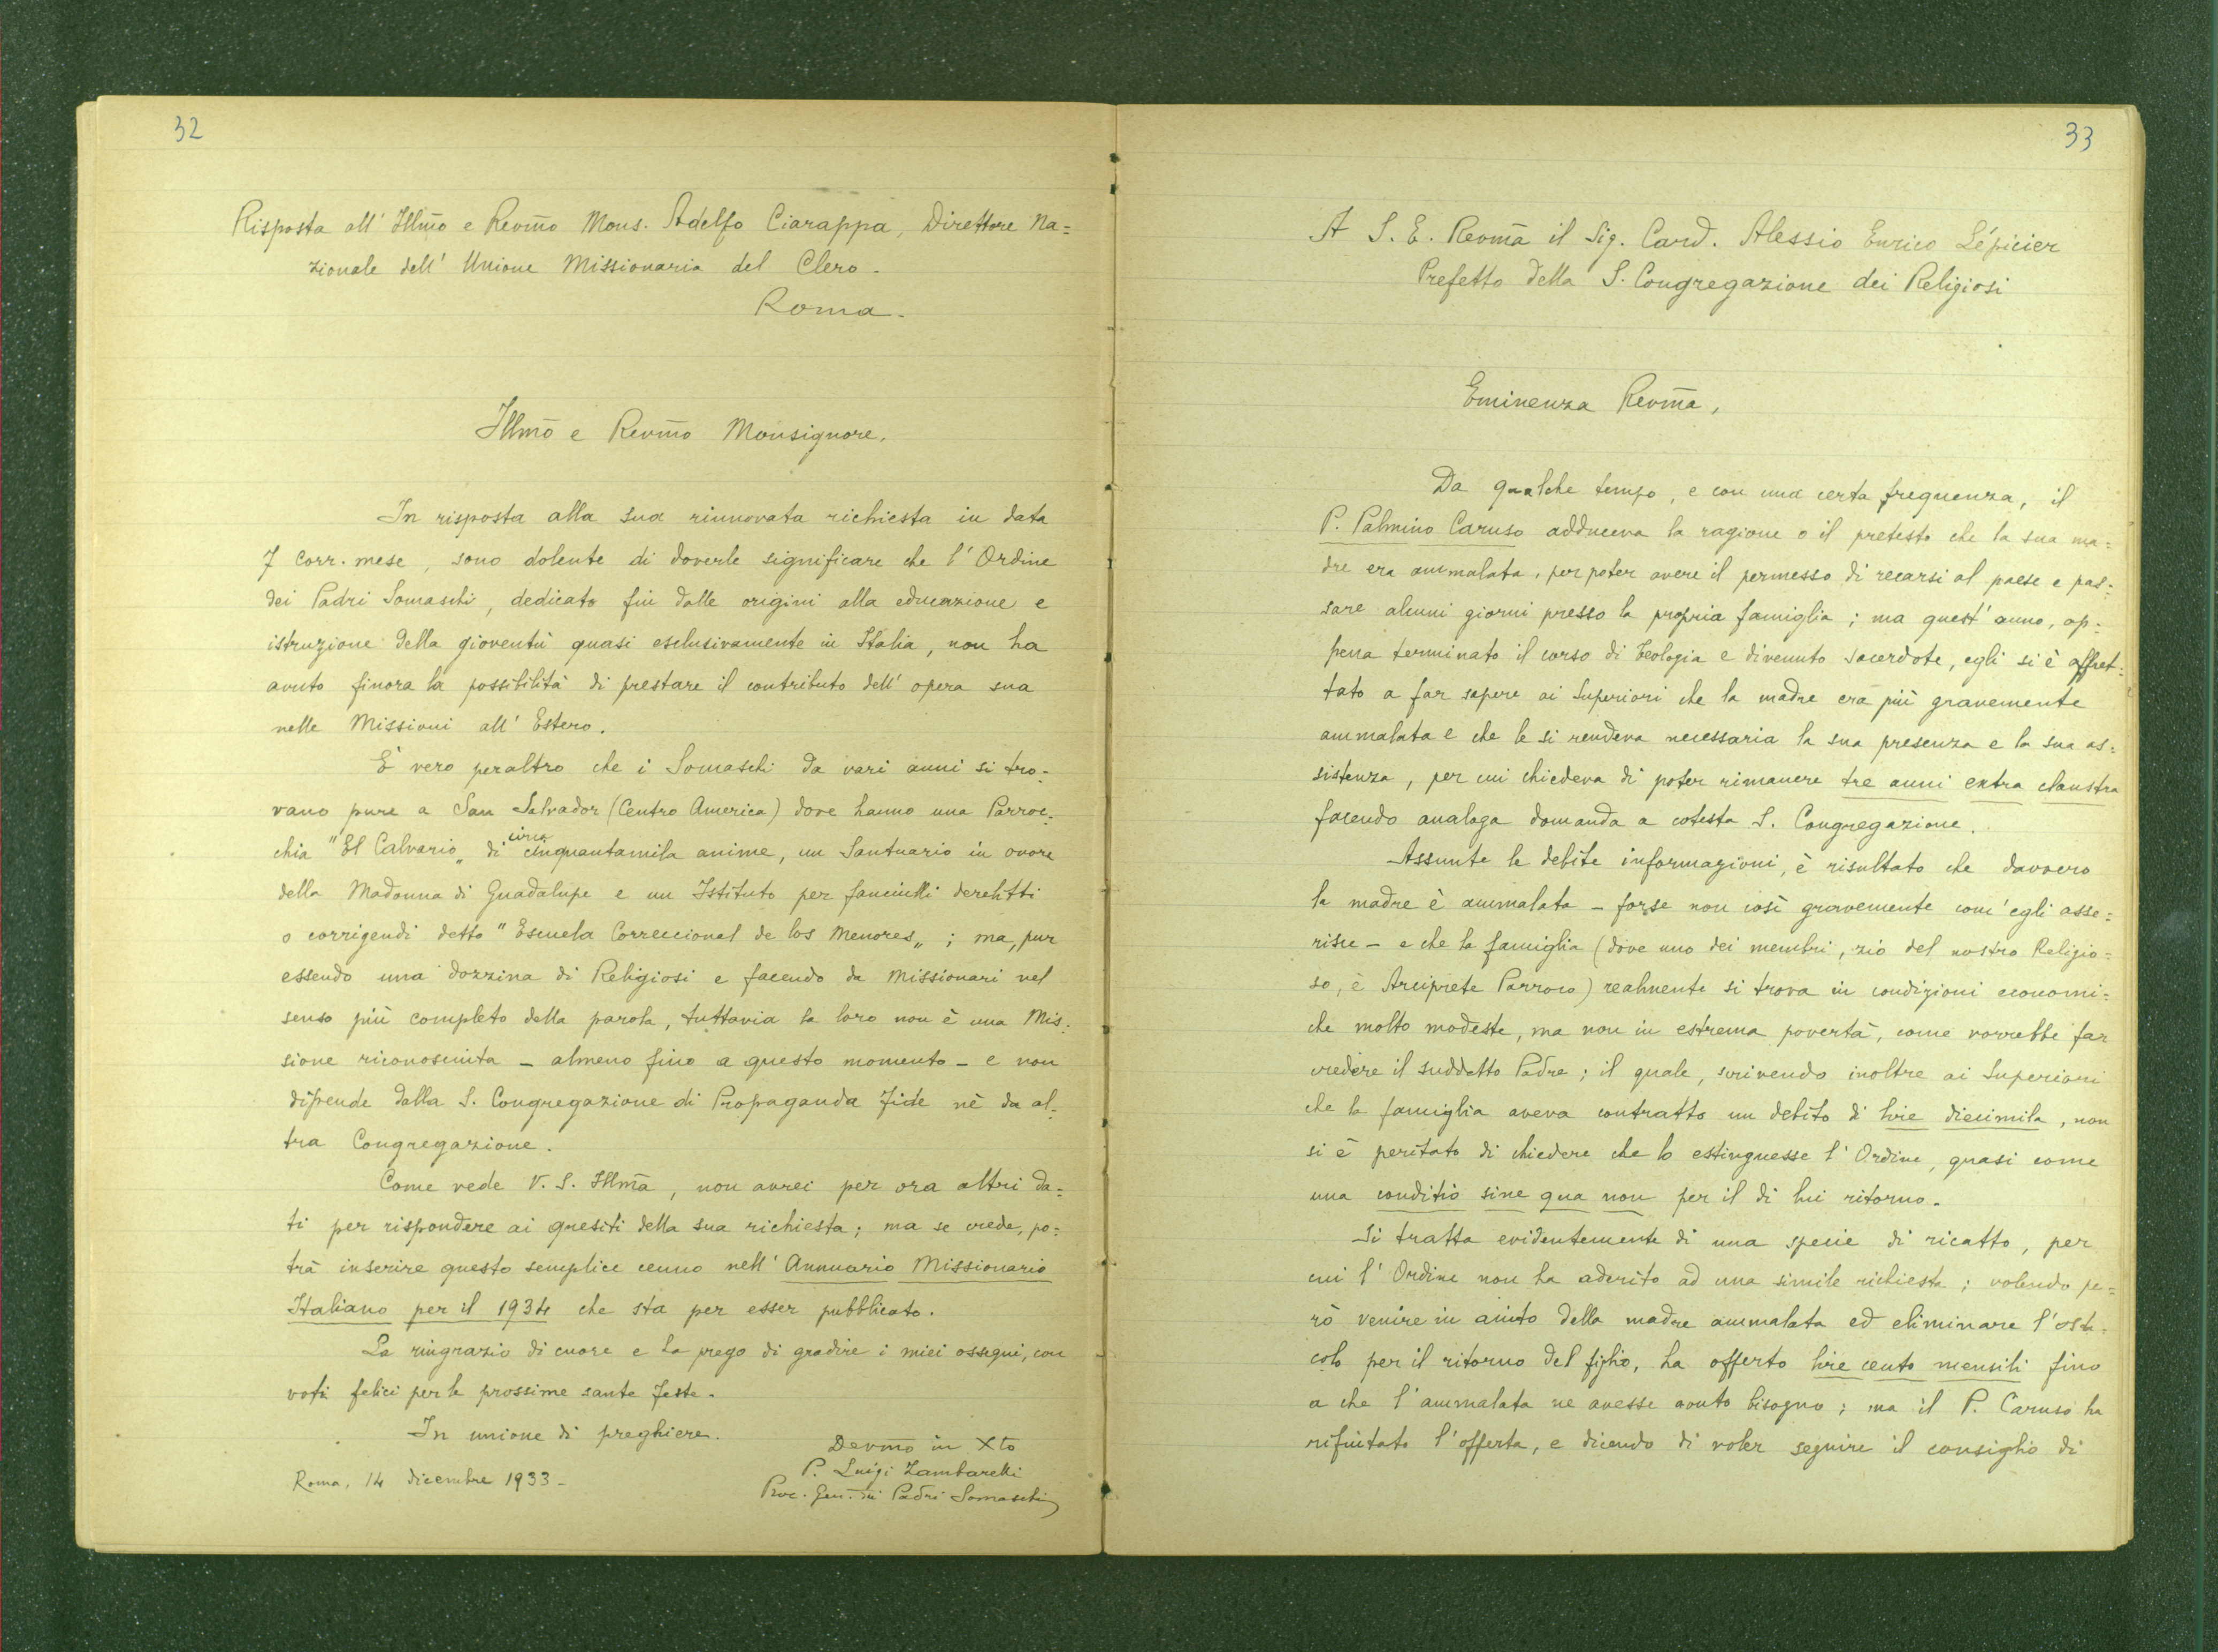 32
Risposta all' Illm̃o e Revm̃o Mons. Adelfo Ciarappa, Direttore Na=
zionale dell' Unione Missionaria del Clero.
Roma.
Illmõ e Revm̃o Monsignore.
In risposta alla sua rinnovata richiesta in data
7 corr. mese, sono dolente di doverle significare che l'Ordine
dei Padri Somaschi, dedicato fin dalle origini alla educazione e
istruzione della gioventù quasi esclusivamente in Italia, non ha
avuto finora la possibilità di prestare il contributo dell'opera sua
nelle Missioni all'Estero.
È vero peraltro che i Somaschi da vari anni si tro=
vano pure a San Salvador (Centro America) dove hanno una Parroc=
chia "El Calvario„ di circa cinquantamila anime, un Santuario in onore
della Madonna di Guadalupe e un Istituto per fanciulli derelitti
o corrigendi detto "Escuela Correccional de los Menores„ ; ma, pur
essendo una dozzina di Religiosi e facendo da Missionari nel
senso più completo della parola, tuttavia la loro non è una Mis=
sione riconosciuta – almeno fino a questo momento – e non
dipende dalla S. Congregazione di Propaganda Fide nè da al=
tra Congregazione.
Come vede V. S. Illm̃a, non avrei per ora altri da=
ti per rispondere ai quesiti della sua richiesta; ma se crede, po=
trà inserire questo semplice cenno nell'Annuario Missionario
Italiano per il 1934 che sta per esser pubblicato.
La ringrazio di cuore e La prego di gradire i miei ossequi, con
voti felici per le prossime sante feste.
In unione di preghiere.
Devm̃o in Xto
P. Luigi Zambarelli
Roma, 14 dicembre 1933 –
Proc. Gen. dei Padri Somaschi
33
A S. E. Revm̃a il Sig. Card. Alessio Enrico Lépicier
Prefetto della S. Congregazione dei Religiosi
Eminenza Revm̃a,
Da qualche tempo, e con una certa frequenza, il
P. Palmino Caruso adduceva la ragione o il pretesto che la sua ma=
dre era ammalata, per poter avere il permesso di recarsi al paese e pas=
sare alcuni giorni presso la propria famiglia; ma quest'anno, ap=
pena terminato il corso di teologia e divenuto sacerdote, egli si è affret=
tato a far sapere ai Superiori che la madre era più gravemente
ammalata e che le si rendeva necessaria la sua presenza e la sua as=
sistenza, per cui chiedeva di poter rimanere tre anni extra claustra
facendo analoga domanda a cotesta S. Congregazione.
Assunte le debite informazioni, è risultato che davvero
la madre è ammalata – forse non così gravemente com'egli asse=
risce – e che la famiglia (dove uno dei membri, zio del nostro Religio=
so, è Arciprete Parroco) realmente si trova in condizioni economi=
che molto modeste, ma non in estrema povertà, come vorrebbe far
credere il suddetto Padre; il quale, scrivendo inoltre ai Superiori
che la famiglia aveva contratto un debito di lire diecimila, non
si è peritato di chiedere che lo estinguesse l'Ordine, quasi come
una conditio sine qua non per il di lui ritorno.
Si tratta evidentemente di una specie di ricatto, per
cui l'Ordine non ha aderito ad una simile richiesta; volendo pe=
rò venire in aiuto della madre ammalata ed eliminare l'osta=
colo per il ritorno del figlio, ha offerto lire cento mensili fino
a che l'ammalata ne avesse avuto bisogno; ma il P. Caruso ha
rifiutato l'offerta, e dicendo di voler seguire il consiglio di